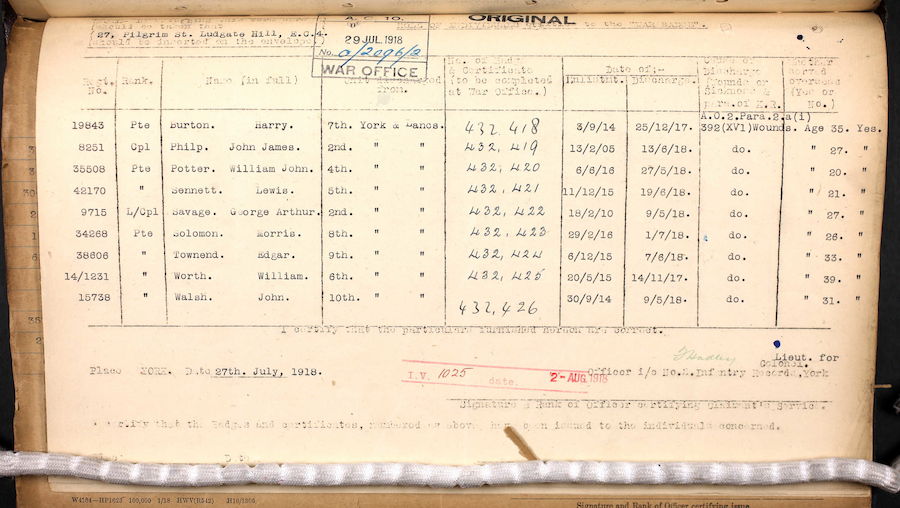 A.C. 10. ORIGINAL
to the "WAR BADGE".
(27, Pilgrim St. Ludgate Hill, E.C.4.
should be inserted on the envelope.)
29 JUL. 1918
No. 0/2096/2
WAR OFFICE
Regt. No. Rank. Name (in full) from. No. of Badge & Certificate (to be completed at War Office.) Date of:- Enlistmt. Discharge. Cause of Discharge (Wounds or Sickness & para. of K.R. served overseas (Yes or No.)
A.O.2.Para.2.a(i)
19843 Pte Burton. Harry. 7th. York & Lancs. 432,418 3/9/14 25/12/17. 392(XV1)Wounds. Age 35. Yes.
8251 Cpl Philp. John James. 2nd. " " 432,419 13/2/05 13/6/18. do. " 27. "
35508 Pte Potter. William John. 4th. " " 432,420 6/6/16 27/5/18. do. " 20. "
42170 " Sennett. Lewis. 5th. " " 432,421 11/12/15 19/6/18. do. " 21. "
9715 L/Cpl Savage. George Arthur. 2nd. " " 432,422 18/2/10 9/5/18. do. " 27. "
34268 Pte Solomon. Morris. 8th. " " 432,423 29/2/16 1/7/18. do. " 26. "
38606 " Townend. Edgar. 9th. " " 432,424 6/12/15 7/6/18. do. " 33. "
14/1231 " Worth. William. 6th. " " 432,425 20/5/15 14/11/17. do. " 39. "
15738 " Walsh. John. 10th. " " 432,426 30/9/14 9/5/18. do. " 31. "
I certify that the particulars furnished hereon are correct.
Lieut. for
Colonel.
Place YORK. Date 27th. July, 1918. I.V. 1025 date. 2- AUG. 1918 Officer i/c No.2. Infntry Records, York
Signature & Rank of Officer certifying Claimant's Service.
certify that the Badges and certificates, numbered as above, have been issued to the individuals concerned.
W4304—HP1623 100,000 1/18 HWV(R542) H16/1306
Signature and Rank of Officer certifying issue